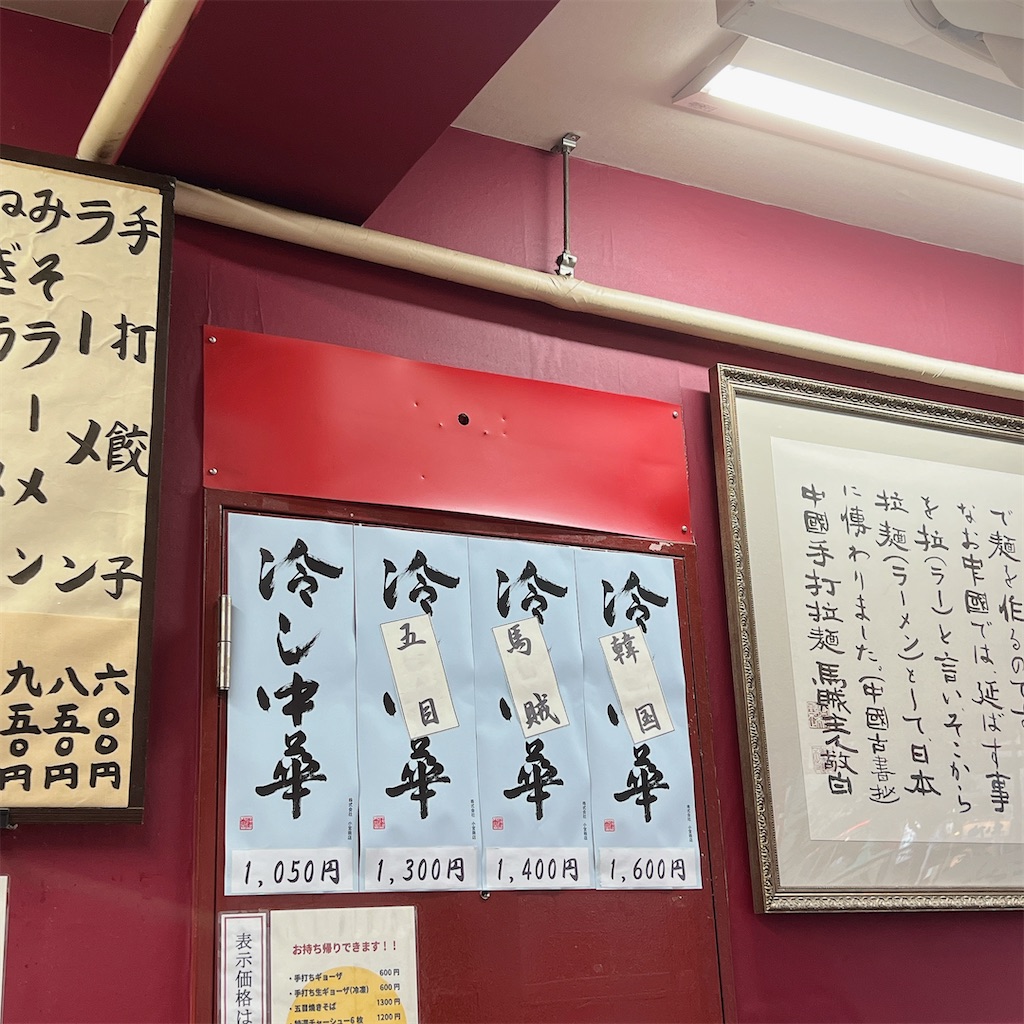 手打餃子 六〇〇円
ラーメン 八五〇円
みそラーメン 九五〇円
ねぎラ
冷し中華
1,050円
冷 五目 華
1,300円
冷 馬賊 華
1,400円
冷 韓国 華
1,600円
表示価格は
お持ち帰りできます！！
・手打ちギョーザ 600円
・手打ち生ギョーザ(冷凍) 600円
・五目焼きそば 1300円
・特選チャーシュー6枚 1200円
で麺を作るのです
なお中國では、延ばす事
を拉(ラー)と言い、そこから
拉麺(ラーメン)として、日本
に傳わりました。(中國古書抄)
中國手打拉麺 馬賊主人敬白